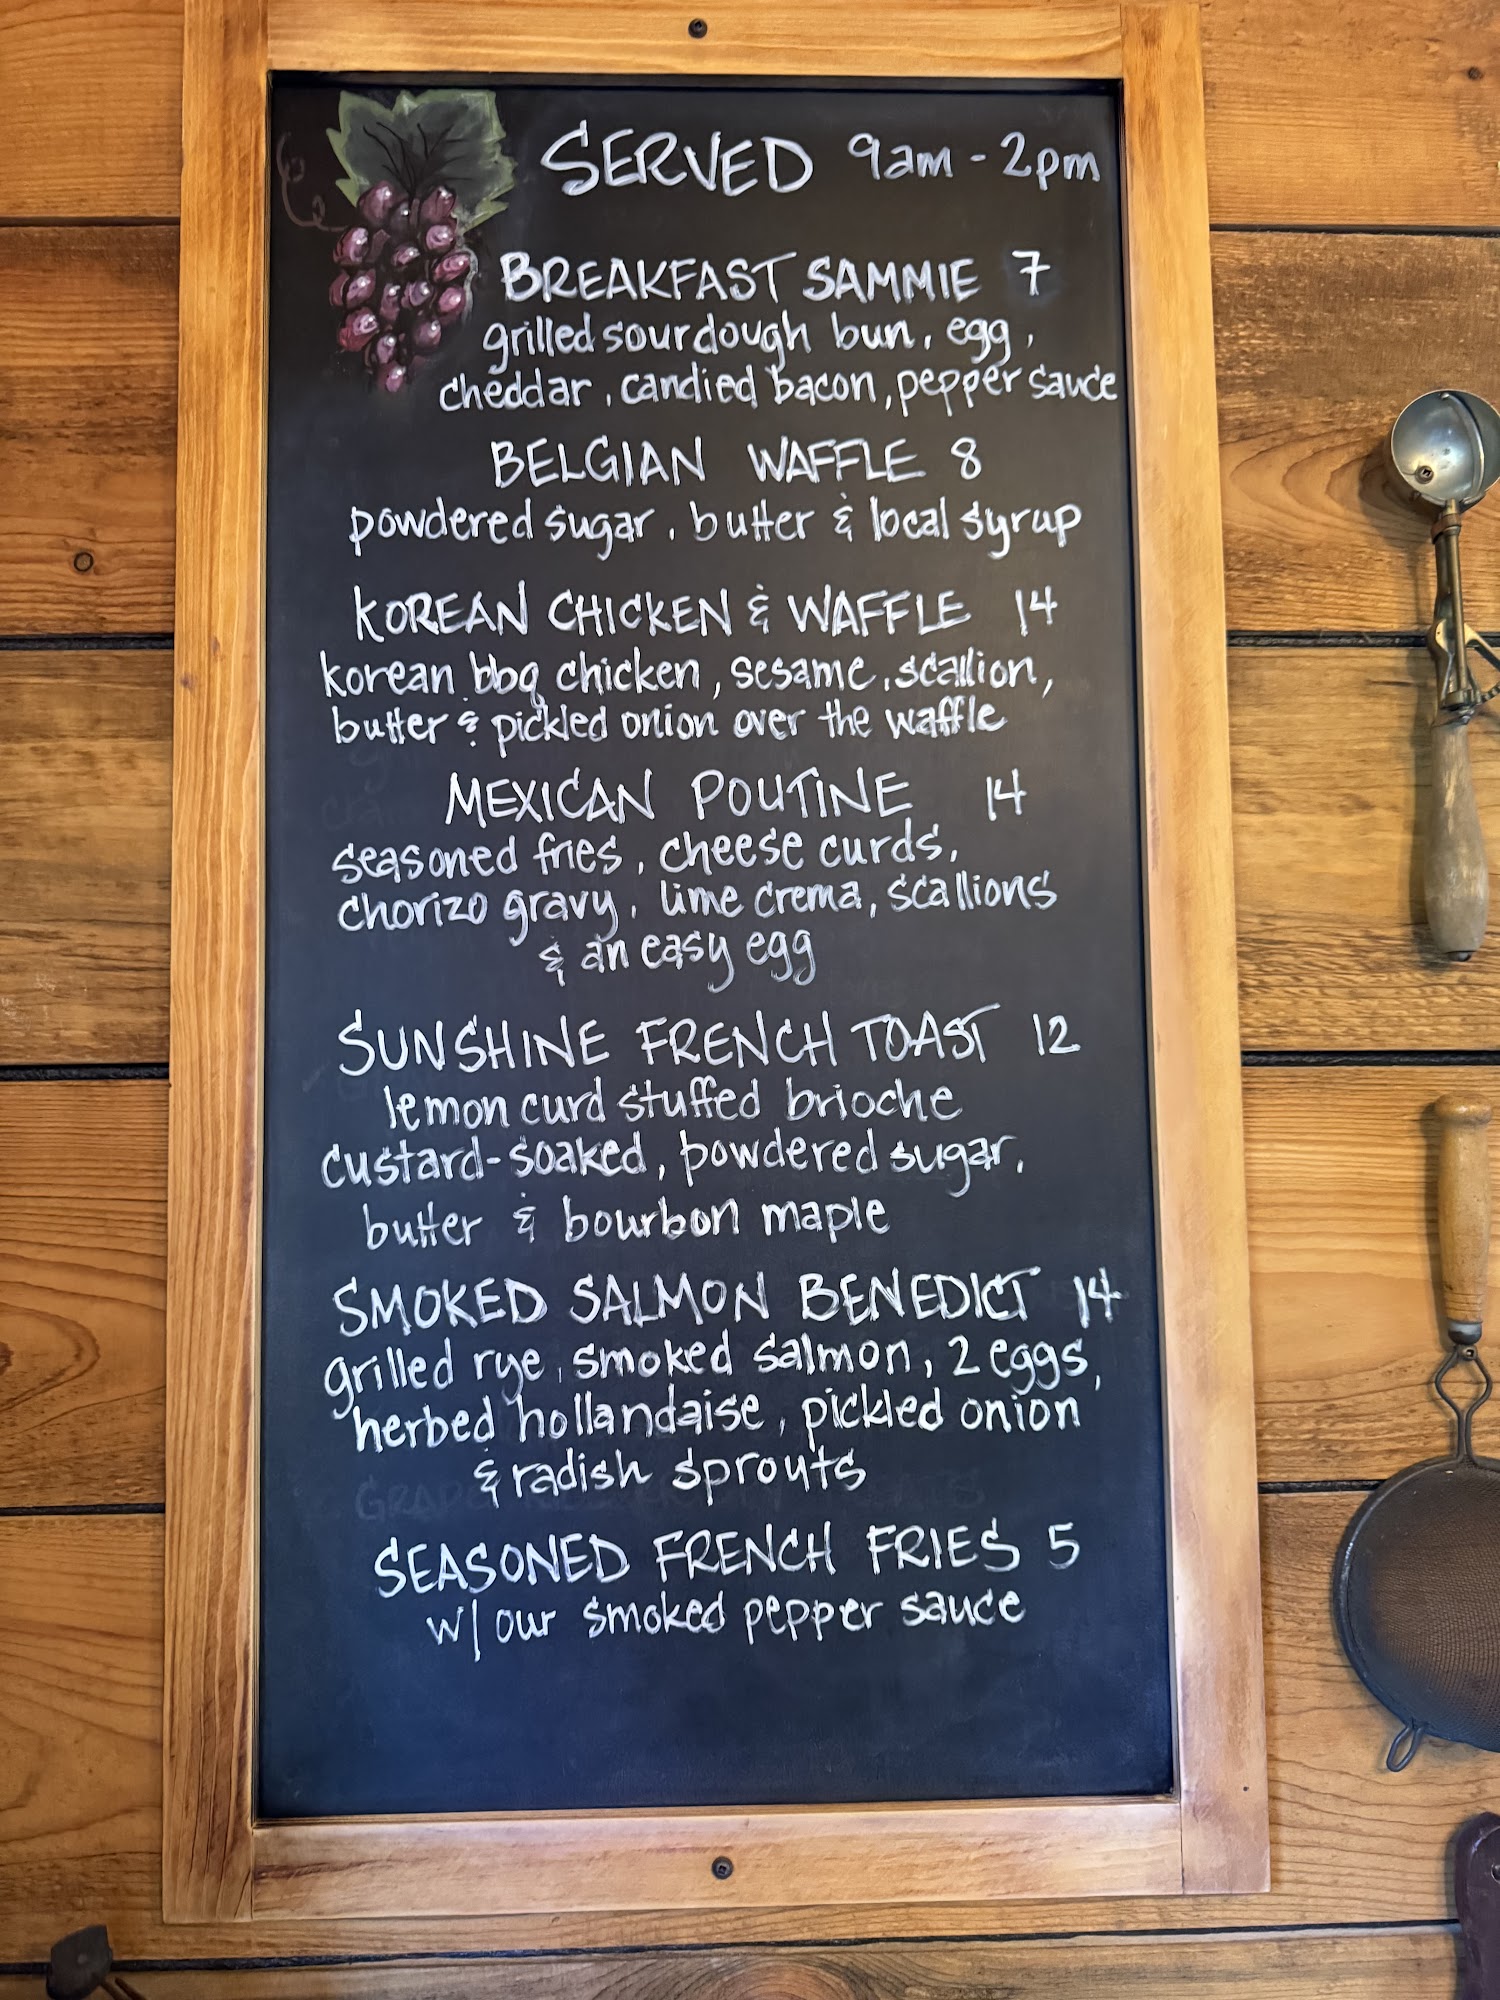 SERVED 9am - 2pm
BREAKFAST SAMMIE 7
grilled sourdough bun, egg,
cheddar, candied bacon, pepper sauce
BELGIAN WAFFLE 8
powdered sugar, butter & local syrup
KOREAN CHICKEN & WAFFLE 14
korean bbq chicken, sesame, scallion,
butter & pickled onion over the waffle
MEXICAN POUTINE 14
seasoned fries, cheese curds,
chorizo gravy, lime crema, scallions
& an easy egg
SUNSHINE FRENCH TOAST 12
lemon curd stuffed brioche
custard-soaked, powdered sugar,
butter & bourbon maple
SMOKED SALMON BENEDICT 14
grilled rye, smoked salmon, 2 eggs,
herbed hollandaise, pickled onion
& radish sprouts
SEASONED FRENCH FRIES 5
w/ our smoked pepper sauce